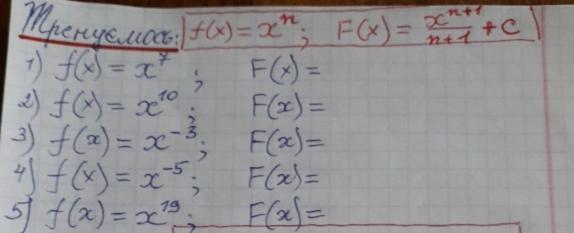 Тренуємось: f(x) = xⁿ; F(x) = xⁿ⁺¹/(n+1) + C
1) f(x) = x⁷; F(x) =
2) f(x) = x¹⁰; F(x) =
3) f(x) = x⁻³; F(x) =
4) f(x) = x⁻⁵; F(x) =
5) f(x) = x¹⁹; F(x) =